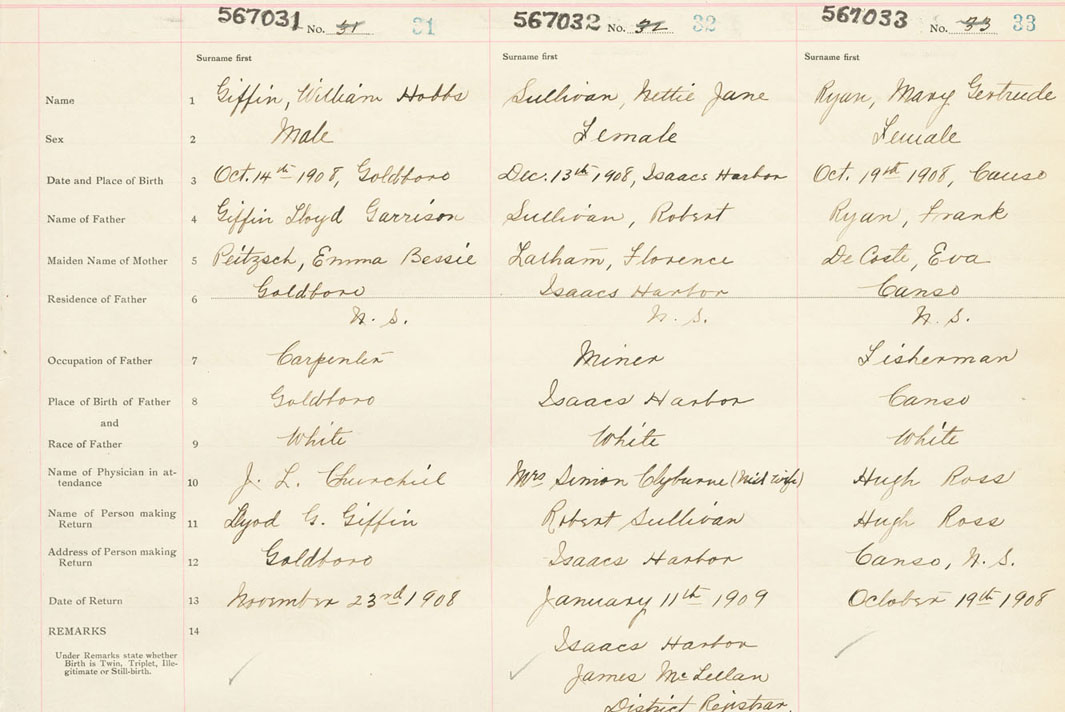 567031 No. 31 31 567032 No. 32 32 567033 No. 33 33
Surname first Surname first Surname first
Name 1 Giffin, William Hobbs Sullivan, Nettie Jane Ryan, Mary Gertrude
Sex 2 Male Female Female
Date and Place of Birth 3 Oct. 14th 1908, Goldboro Dec. 13th 1908, Isaacs Harbor Oct. 19th 1908, Canso
Name of Father 4 Giffin Lloyd Garrison Sullivan, Robert Ryan, Frank
Maiden Name of Mother 5 Peitzsch, Emma Bessie Latham, Florence De Coste, Eva
Residence of Father 6 Goldboro Isaacs Harbor Canso
N. S. N. S. N. S.
Occupation of Father 7 Carpenter Miner Fisherman
Place of Birth of Father 8 Goldboro Isaacs Harbor Canso
and
Race of Father 9 White White White
Name of Physician in at-
tendance 10 J. L. Churchill Mrs Simon Clyburne (Mid wife) Hugh Ross
Name of Person making
Return 11 Lyod G. Giffin Robert Sullivan Hugh Ross
Address of Person making
Return 12 Goldboro Isaacs Harbor Canso, N. S.
Date of Return 13 November 23rd 1908 January 11th 1909 October 19th 1908
REMARKS 14 Isaacs Harbor
Under Remarks state whether
Birth is Twin, Triplet, Ille-
gitimate or Still-birth.
James McLellan
District Registrar.